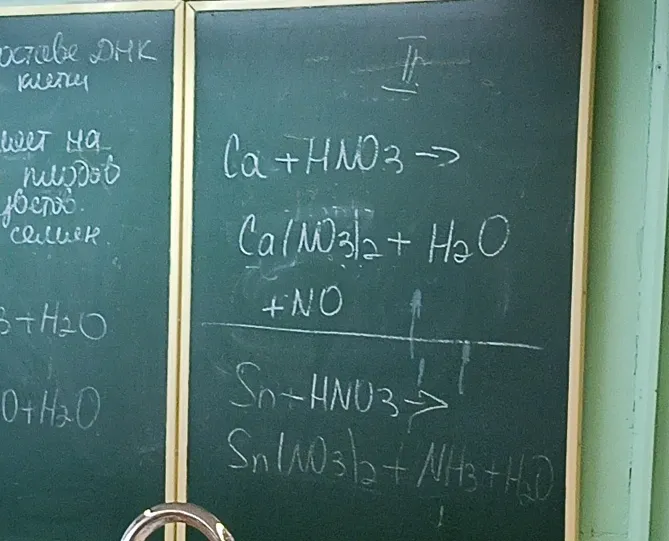 оставе ДНК
клетки
ияет на
плодов
цветов.
семян.
3+H2O
O+H2O
II
Ca+HNO3→
Ca(NO3)2+H2O
+NO
Sn+HNO3→
Sn(NO3)2+NH3+H2O